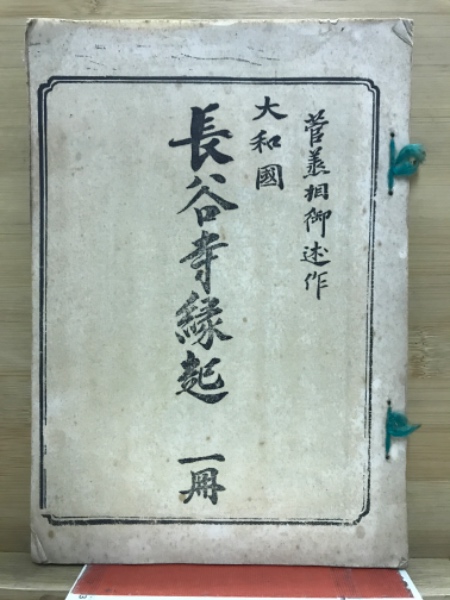 菅蒸相御述作
大和國
長谷寺緣起 一冊